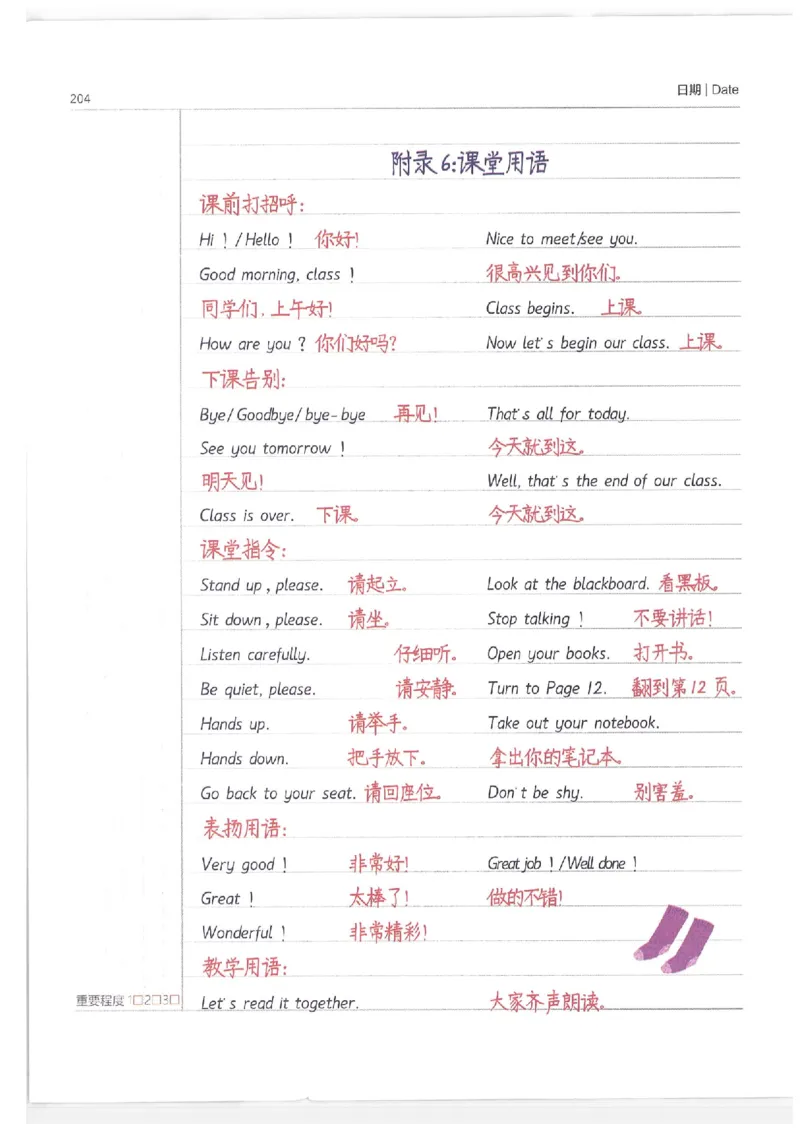 204
日期 | Date
附录6:课堂用语
课前打招呼:
Hi！/Hello！ 你好! Nice to meet/see you.
Good morning, class！ 很高兴见到你们。
同学们,上午好! Class begins. 上课。
How are you？你们好吗? Now let's begin our class. 上课。
下课告别:
Bye/Goodbye/bye-bye 再见! That's all for today.
See you tomorrow！ 今天就到这。
明天见! Well, that's the end of our class.
Class is over. 下课。 今天就到这。
课堂指令:
Stand up, please. 请起立。 Look at the blackboard. 看黑板。
Sit down, please. 请坐。 Stop talking！ 不要讲话!
Listen carefully. 仔细听。 Open your books. 打开书。
Be quiet, please. 请安静。 Turn to Page 12. 翻到第12页。
Hands up. 请举手。 Take out your notebook.
Hands down. 把手放下。 拿出你的笔记本。
Go back to your seat. 请回座位。 Don't be shy. 别害羞。
表扬用语:
Very good！ 非常好! Great job！/Well done！
Great！ 太棒了! 做的不错!
Wonderful！ 非常精彩!
教学用语:
重要程度 1□2□3□ Let's read it together. 大家齐声朗读。